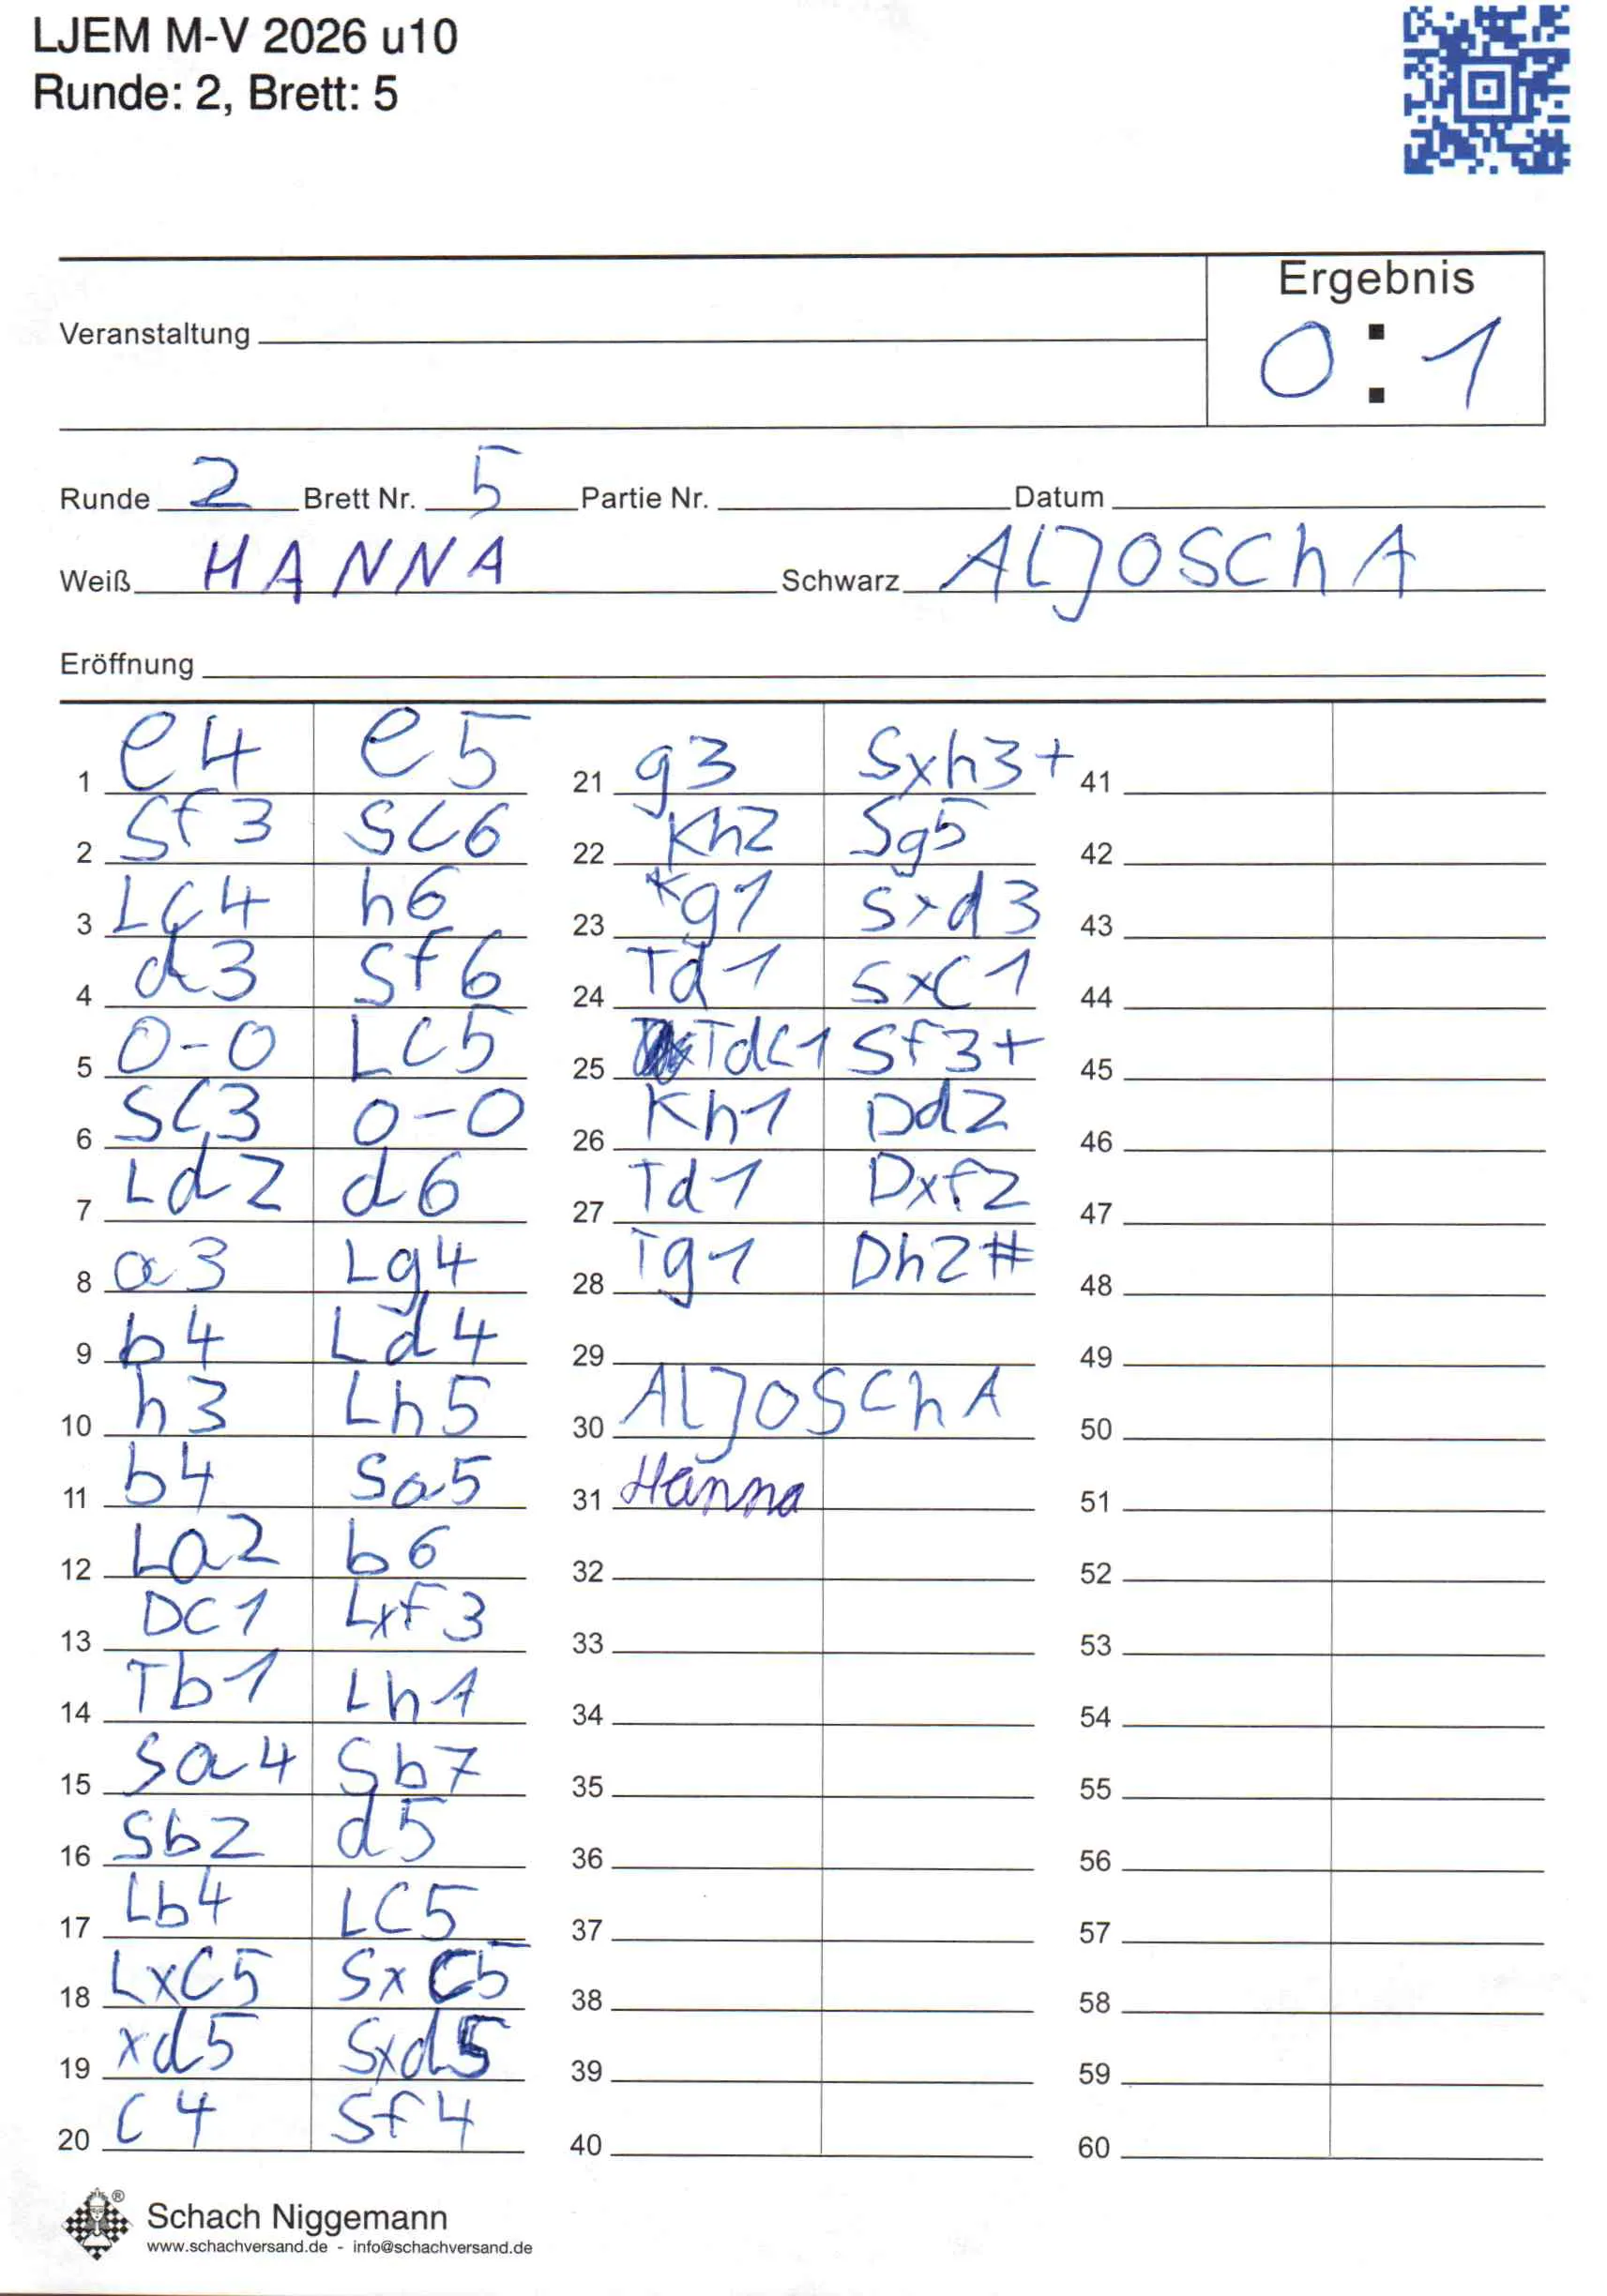 LJEM M-V 2026 u10
Runde: 2, Brett: 5
Ergebnis
0:1
Veranstaltung
Runde 2 Brett Nr. 5 Partie Nr. Datum
Weiß HANNA Schwarz ALJOSChA
Eröffnung
1 e4 e5
2 Sf3 SC6
3 LC4 h6
4 d3 Sf6
5 0-0 LC5
6 SC3 0-0
7 Ld2 d6
8 a3 Lg4
9 b4 Ld4
10 h3 Lh5
11 b4 Sa5
12 La2 b6
13 DC1 Lxf3
14 Tb1 Lh1
15 Sa4 Sb7
16 Sb2 d5
17 Lb4 LC5
18 LxC5 SxC5
19 xd5 Sxd5
20 C4 Sf4
21 g3 Sxh3+
22 Kh2 Sg5
23 Kg1 Sxd3
24 Td1 SxC1
25 TdC1 Sf3+
26 Kh1 Dd2
27 Td1 Dxf2
28 Tg1 Dh2#
29
30 ALJOSChA
31 Hanna
32
33
34
35
36
37
38
39
40
41
42
43
44
45
46
47
48
49
50
51
52
53
54
55
56
57
58
59
60
Schach Niggemann
www.schachversand.de - info@schachversand.de